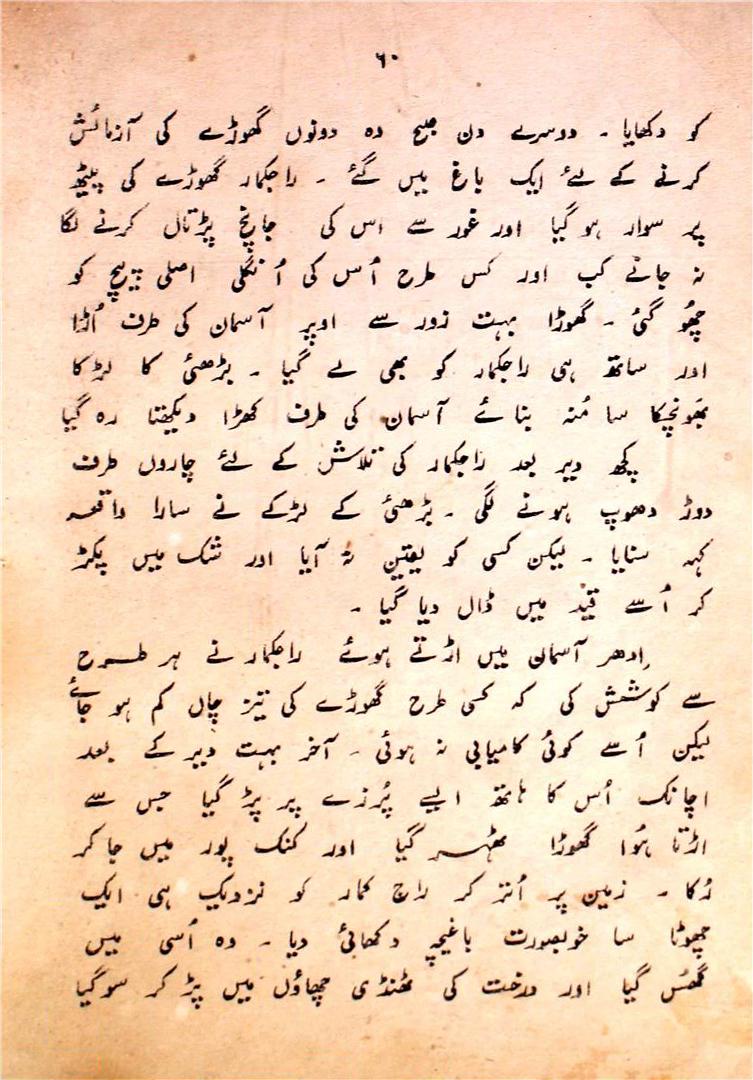 ۶۰
کو دکھایا ۔ دوسرے دن صبح وہ دونوں گھوڑے کی آزمائش
کرنے کے لئے ایک باغ میں گئے ۔ راجکمار گھوڑے کی پیٹھ
پر سوار ہو گیا اور غور سے اس کی جانچ پڑتال کرنے لگا
نہ جانے کب اور کس طرح اُس کی اُنگلی اصلی پیچ کو
چھُو گئی ۔ گھوڑا بہت زور سے اوپر آسمان کی طرف اُڑا
اور ساتھ ہی راجکمار کو بھی لے گیا ۔ بڑھئی کا لڑکا
بھَونچکا سا مُنہ بنائے آسمان کی طرف کھڑا دیکھتا رہ گیا
کچھ دیر بعد راجکمار کی تلاش کے لئے چاروں طرف
دوڑ دھوپ ہونے لگی ۔ بڑھئی کے لڑکے نے سارا واقعہ
کہہ سنایا ۔ لیکن کسی کو یقین نہ آیا اور شک میں پکڑ
کر اُسے قید میں ڈال دیا گیا ۔
اِدھر آسمان میں اڑتے ہوئے راجکمار نے ہر طرح
سے کوشش کی کہ کسی طرح گھوڑے کی تیز چال کم ہو جائے
لیکن اُسے کوئی کامیابی نہ ہوئی ۔ آخر بہت دیر کے بعد
اچانک اُس کا ہاتھ ایسے پُرزے پر پڑ گیا جس سے
اڑتا ہُوا گھوڑا ٹھہر گیا اور کنک پور میں جا کر
رُکا ۔ زمین پر اُتر کر راج کمار کو نزدیک ہی ایک
چھوٹا سا خوبصورت باغیچہ دکھائی دیا ۔ وہ اُسی میں
گھُس گیا اور درخت کی ٹھنڈی چھاؤں میں پڑ کر سو گیا